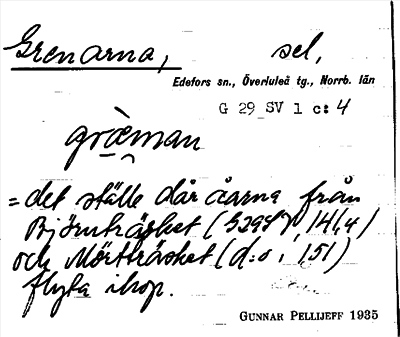 Grenarna, sel,
Edefors sn., Överluleå tg., Norrb. län
G 29 SV 1 c: 4
græ̀man
= det ställe där åarna från
Björnträsket (G29SV, 1A1,4)
och Mörtträsket (d:o, 151)
flyta ihop.
GUNNAR PELLIJEFF 1935